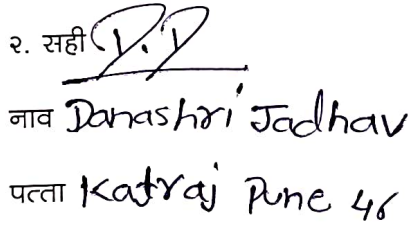 २. सही D.D
नाव Danashri Jadhav
पत्ता Katraj Pune 46